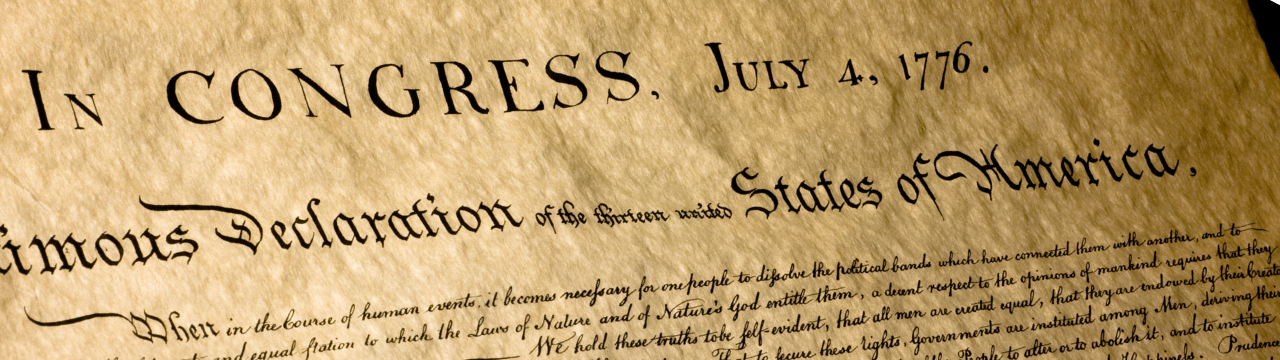 In CONGRESS, July 4, 1776.
imous Declaration of the thirteen united States of America,
When in the Course of human events, it becomes necessary for one people to dissolve the political bands which have connected them with another, and to
and equal station to which the Laws of Nature and of Nature's God entitle them, a decent respect to the opinions of mankind requires that they
We hold these truths to be self-evident, that all men are created equal, that they are endowed by their Creato
That to secure these rights, Governments are instituted among Men, deriving their
People to alter or to abolish it, and to institute
Prudence